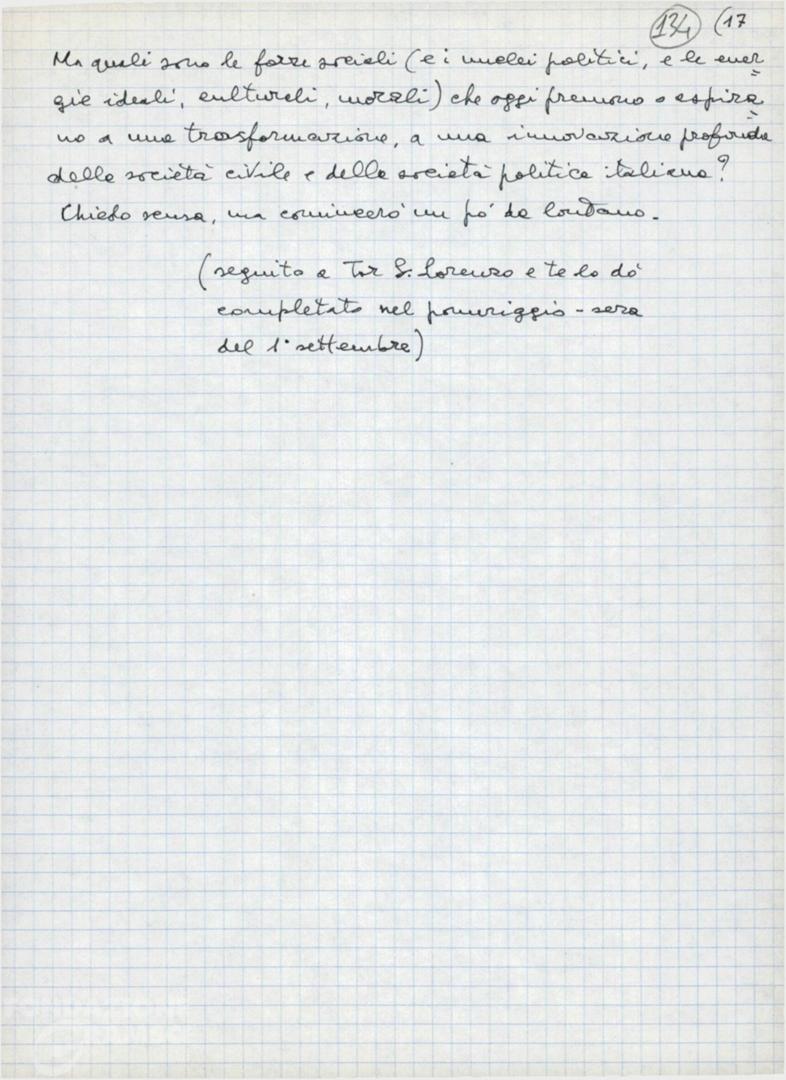 134 (17
Ma quali sono le forze sociali (e i nuclei politici, e le ener=
gie ideali, culturali, morali) che oggi premono o aspira=
no a una trasformazione, a una innovazione profonda
della società civile e della società politica italiana?
Chiedo scusa, ma comincerò un pó da lontano.
(seguito a Tor S. Lorenzo e te lo dò
completato nel pomeriggio - sera
del 1° settembre)
FONDAZIONE
GRAMSCI